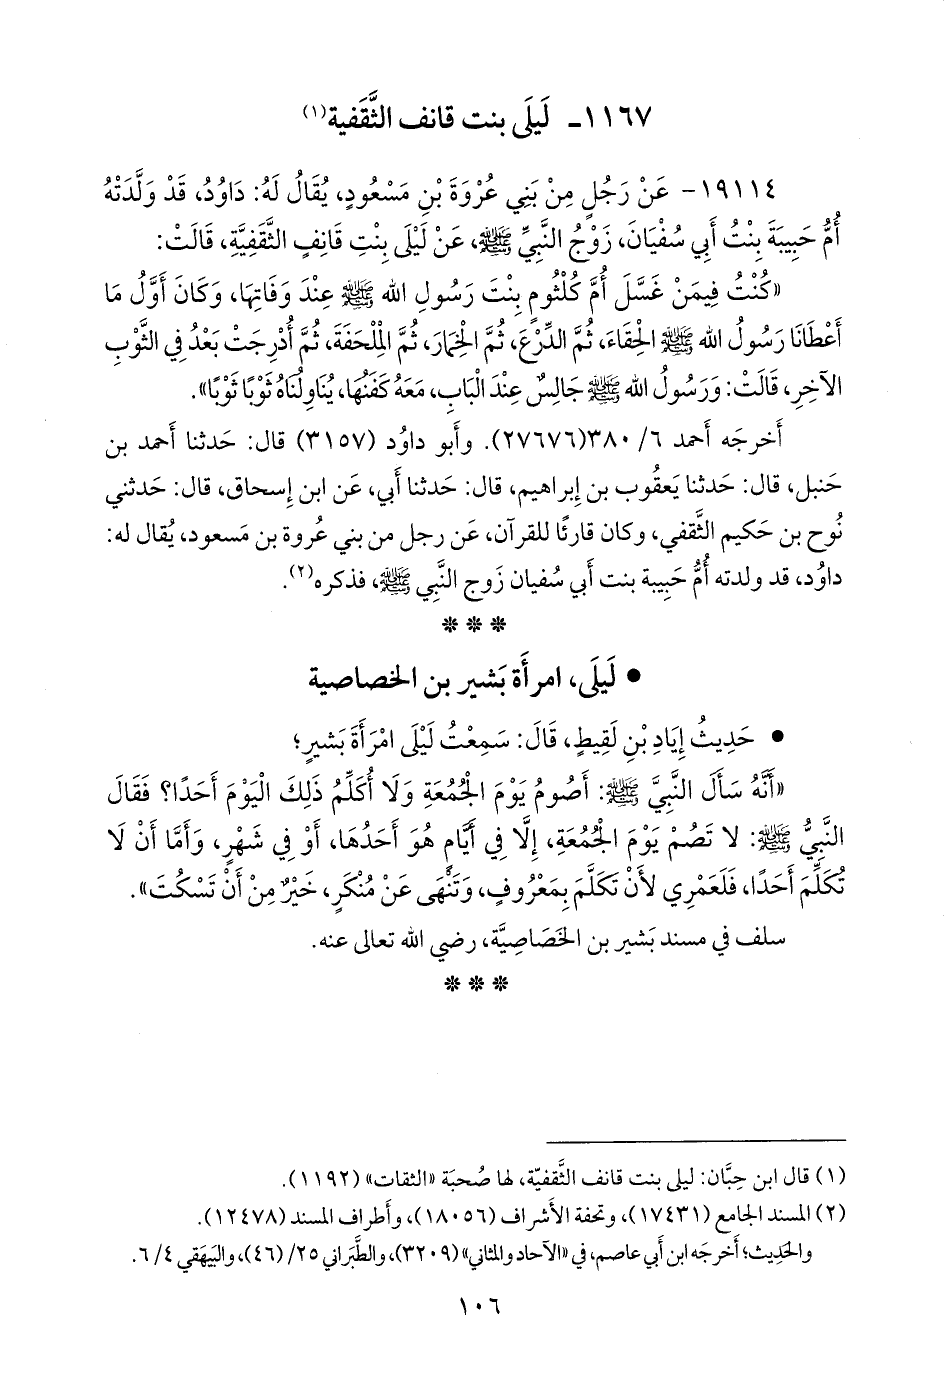 ١١٦٧- لَيلَى بنت قانف الثَّقَفية(١)
١٩١١٤- عَنْ رَجُلٍ مِنْ بَنِي عُرْوَةَ بْنِ مَسْعُودٍ، يُقَالُ لَهُ: دَاوُدُ، قَدْ وَلَّدَتْهُ
أُمُّ حَبِيبَةَ بِنْتُ أَبِي سُفْيَانَ، زَوْجُ النَّبِيِّ ﷺ، عَنْ لَيْلَى بِنْتِ قَانِفٍ الثَّقَفِيَّةِ، قَالَتْ:
«كُنْتُ فِيمَنْ غَسَّلَ أُمَّ كُلْثُومٍ بِنْتَ رَسُولِ الله ﷺ عِنْدَ وَفَاتِهَا، وَكَانَ أَوَّلُ مَا
أَعْطَانَا رَسُولُ الله ﷺ الْحِقَاءَ، ثُمَّ الدِّرْعَ، ثُمَّ الْخِمَارَ، ثُمَّ الْمِلْحَفَةَ، ثُمَّ أُدْرِجَتْ بَعْدُ فِي الثَّوْبِ
الآخِرِ، قَالَتْ: وَرَسُولُ الله ﷺ جَالِسٌ عِنْدَ الْبَابِ، مَعَهُ كَفَنُهَا، يُنَاوِلُنَاهُ ثَوْبًا ثَوْبًا».
أَخرجَه أَحمد ٦/ ٣٨٠(٢٧٦٧٦). وأَبو داوُد (٣١٥٧) قال: حَدثنا أَحمد بن
حَنبل، قال: حَدثنا يَعقُوب بن إِبراهيم، قال: حَدثنا أَبي، عَن ابن إِسحاق، قال: حَدثني
نُوح بن حَكيم الثَّقفي، وكان قارئًا للقرآن، عَن رجل من بني عُروة بن مَسعود، يُقال له:
داوُد، قد ولدته أُمُّ حَبيبة بنت أَبي سُفيان زَوج النَّبي ﷺ، فذكره(٢).
* * *
• لَيلَى، امرأَة بَشير بن الخصاصية
• حَدِيثُ إِيَادِ بْنِ لَقِيطٍ، قَالَ: سَمِعْتُ لَيْلَى امْرَأَةَ بَشِيرٍ؛
«أَنَّهُ سَأَلَ النَّبِيَّ ﷺ: أَصُومُ يَوْمَ الْجُمُعَةِ وَلَا أُكَلِّمُ ذَلِكَ الْيَوْمَ أَحَدًا؟ فَقَالَ
النَّبِيُّ ﷺ: لا تَصُمْ يَوْمَ الْجُمُعَةِ، إِلَّا فِي أَيَّامٍ هُوَ أَحَدُهَا، أَوْ فِي شَهْرٍ، وَأَمَّا أَنْ لَا
تُكَلِّمَ أَحَدًا، فَلَعَمْرِي لأَنْ تَكَلَّمَ بِمَعْرُوفٍ، وَتَنْهَى عَنْ مُنْكَرٍ، خَيْرٌ مِنْ أَنْ تَسْكُتَ».
سلف في مسند بَشير بن الخَصَاصِيَّة، رضي الله تعالى عنه.
* * *
(١) قال ابن حِبَّان: ليلى بنت قانف الثَّقفيّة، لها صُحبَة «الثقات» (١١٩٢).
(٢) المسند الجامع (١٧٤٣١)، وتحفة الأَشراف (١٨٠٥٦)، وأَطراف المسند (١٢٤٧٨).
والحَدِيث؛ أَخرجَه ابن أَبي عاصم، في «الآحاد والمثاني» (٣٢٠٩)، والطَّبَراني ٢٥/ (٤٦)، والبَيهَقي ٤/ ٦.
١٠٦